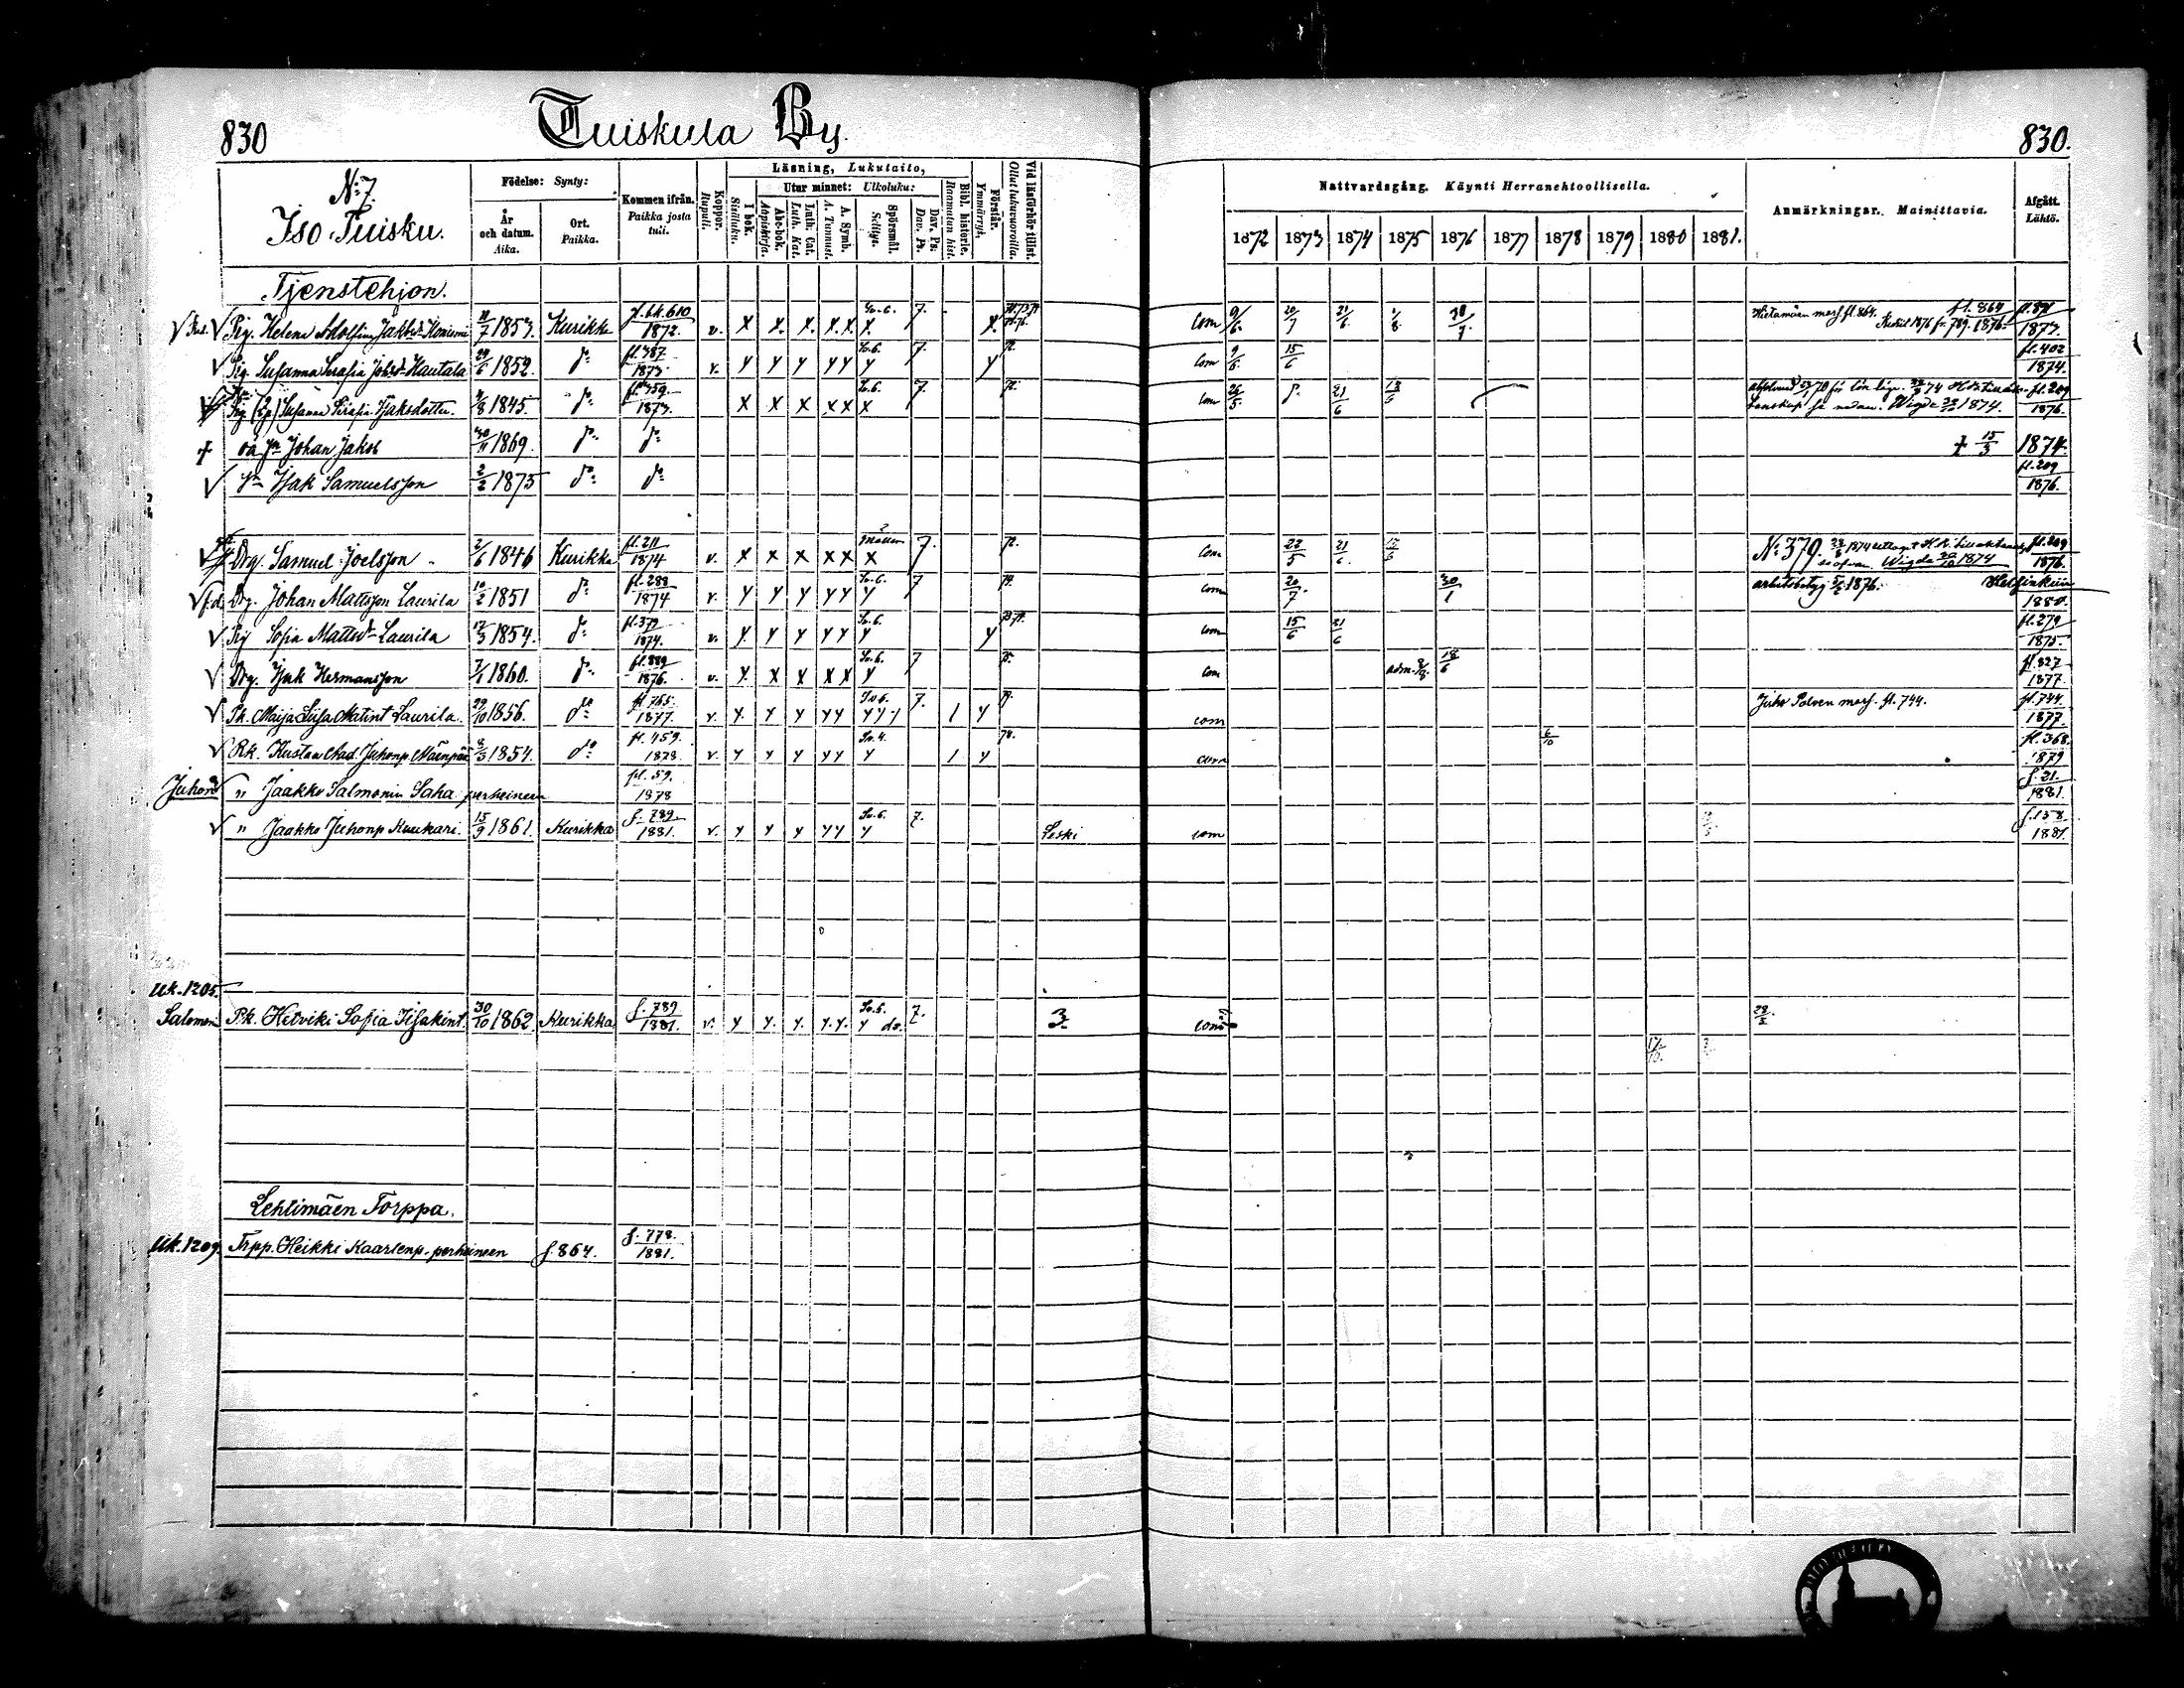 830 Tuiskula By. 830.
N:o 7.
Iso-Tuisku.
Födelse: Synty:
År och datum. Aika.
Ort. Paikka.
Kommen ifrån. Paikka josta tuli.
Koppor. Rupuli.
Läsning, Lukutaito,
I bok. Sisäluku.
Utur minnet: Ulkoluku:
Abc-bok. Aapiskirja.
Luth. Cat. Luth. Kat.
A. Symb. A. Tunnust.
Spörsmål. Selitys.
Dav. Ps: Dav. Ps.
Bibl. historie. Raamatun hist.
Förstår. Ymmärrys.
Vid läsförhör tillst. Ollut lukuvuoroilla.
Nattvardsgång. Käynti Herranehtoollisella.
1872 1873 1874 1875 1876 1877 1878 1879 1880 1881.
Anmärkningar. Mainittavia.
Afgått. Lähtö.
Tjenstehjon.
Pig. Helena Adolfina Jakobsd:r 11/7 1853. Kurikka 1872. v. x x. x. x. x x. 7. x. Com 9/6. 20/7 21/6. fl. 864. 1873.
Pig. Susanna Serafia Johsd:r Hautala 29/6 1852. d:o fl. 487. 1873. v. y y y y y y 7. y Com 9/6. 15/6 fl. 402 1874.
Susanna Serafia Isaksdotter. 3/8 1845. d:o fl. 459. 1873. x x x x x x 7. Com 26/5. d:o 21/6 Wigde 1874. fl. 209 1876.
+ oä Sn Johan Jakob 30/11 1869. d:o d:o + 15/3 1874.
Sn Isak Samuelsson 2/2 1875 d:o d:o fl. 209 1876.
Drg. Samuel Joelsson 2/6 1846 Kurikka fl. 211 1874 v. x x x x x x 7. 72. Com 22/5 21/6. N:o 379. Wigde 20/10 1874 fl. 209 1876.
Drg. Johan Mattsson Laurila 10/2 1851 d:o fl. 288 1874 v. y y y y y y 7 74. com 20/7. 30/1 arbetsbetyg 1876. Helsinkiin 1880.
Pig Sofia Mattsd:r Laurila 17/3 1854. d:o fl. 379 1874. v. y. y y y y y y com 15/6 21/6 fl. 279 1875.
Drg. Isak Hermansson 7/1 1860. d:o fl. 889 1876. v. x x x x x y 7 com adm. 18/6 fl. 827 1877
Pk. Maija Liisa Matint. Laurila. 29/10 1856. d:o fl. 765. 1877. v. y. y y y y 7. 1 y com Juho Polven fl. 744. fl. 744 1877
Rk. Kustaa Aad. Juhonp. Mäenpää 8/3 1854. d:o fl. 459. 1878. v. y y y y y y 1 y 78. com 6/10 fl. 368. 1879
" Jaakko Salmonin Saha perheineen fl. 59. 1878 f. 21. 1881.
" Jaakko Juhonp. Kuukari. 15/9 1861. Kurikka f. 789 1881. v. y y y y y y 7. Leski com f. 158 1881.
Uk. 1205.
Salomon Pk. Hetviki Sofia Iisakint. 30/10 1862. Kurikka f. 789 1881. v. y y. y. y. y. y do. 7. 3 com
Lehtimäen Torppa.
Uk. 1209. Trpp. Heikki Kaarlenp. perheineen f. 864. f. 778. 1881.